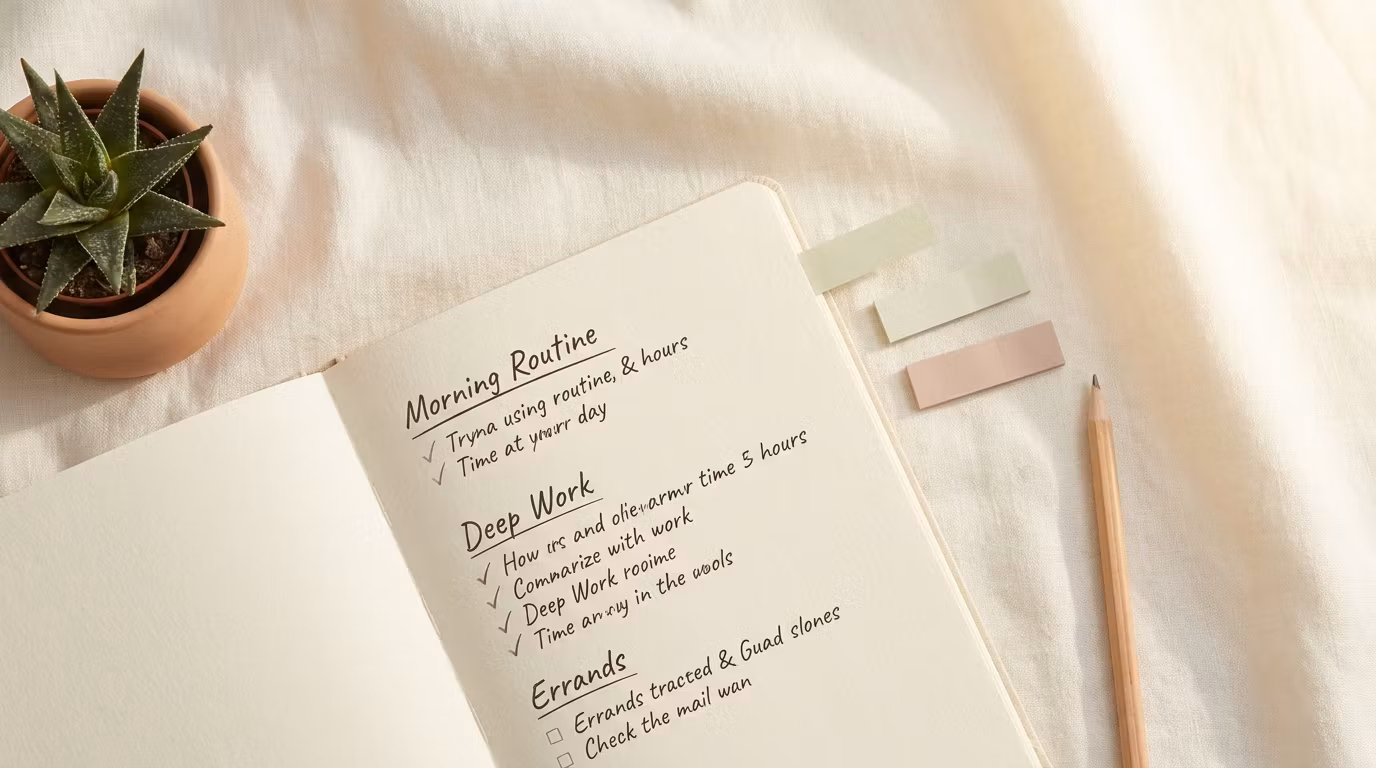 Morning Routine
Tryna using routine, & hours
Time at day
Deep Work
How and time 5 hours
Summarize with work
Deep Work rooime
Time in the
Errands
Errands tracted & Guad slones
Check the mail wan